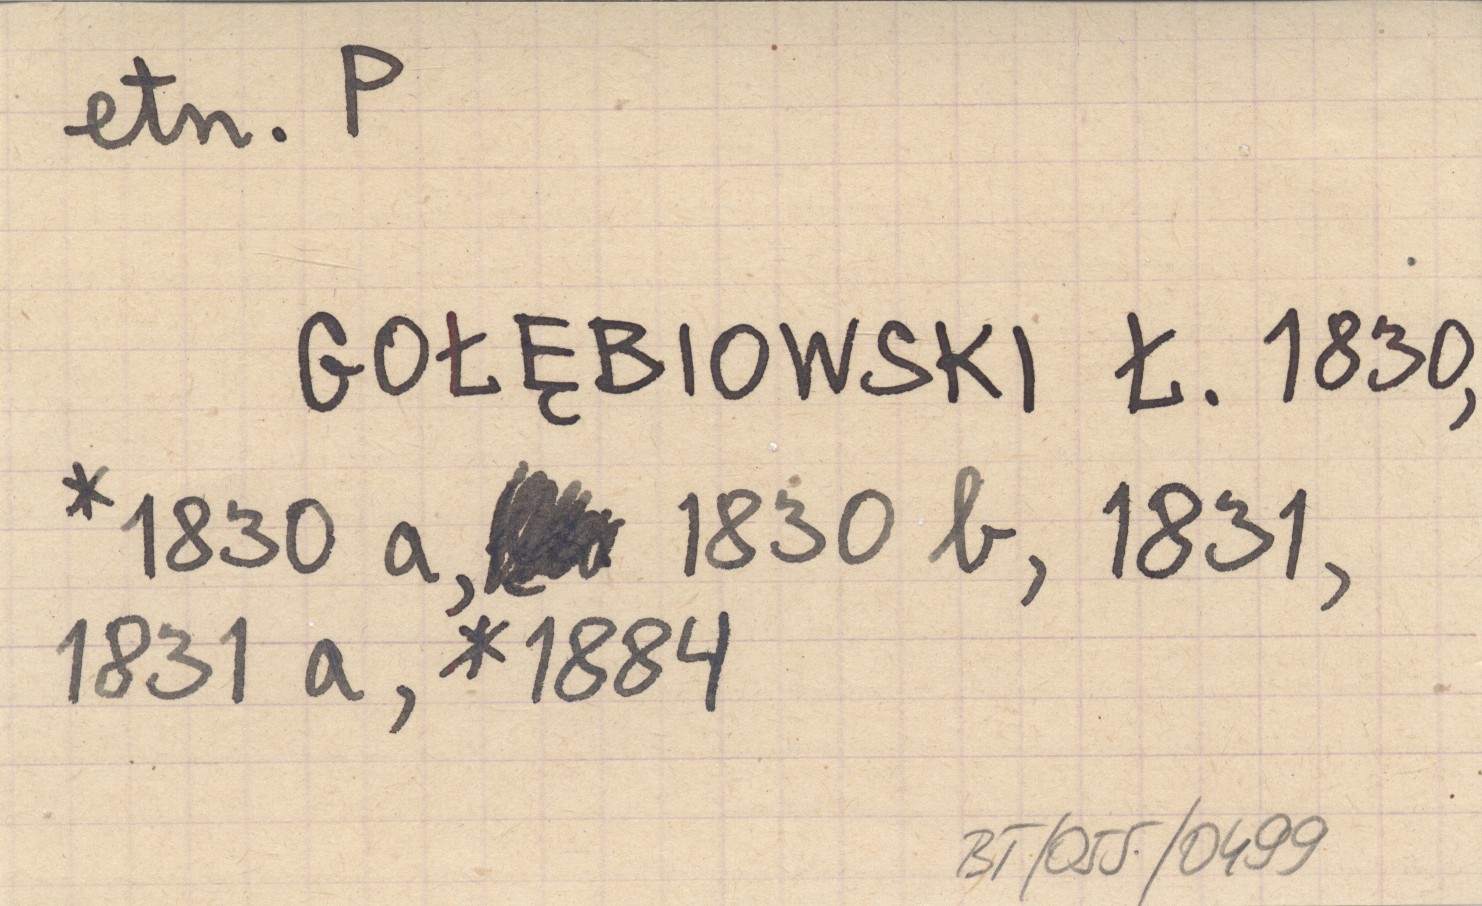 etn. P
GOŁĘBIOWSKI Ł. 1830,
*1830 a, 1830 b, 1831,
1831 a, *1884
BT/055/0499